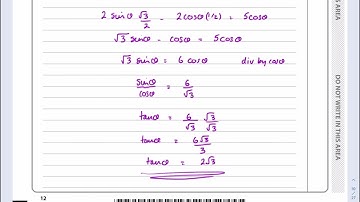 2 sinθ √3/2 - 2cosθ (1/2) = 5cosθ
√3 sinθ - cosθ = 5cosθ
√3 sinθ = 6 cosθ div by cosθ
sinθ/cosθ = 6/√3
tanθ = 6/√3 √3/√3
tanθ = 6√3/3
tanθ = 2√3
12
DO NOT WRITE IN THIS AREA